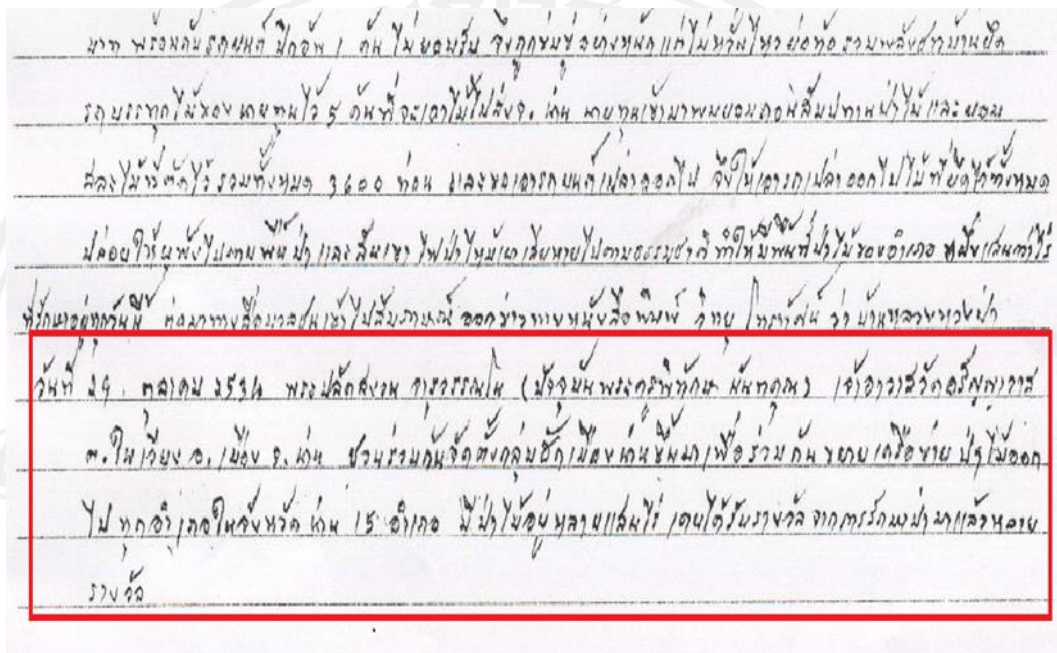 บาท พร้อมกับรถยนต์ ปิกอัพ 1 คัน ไม่ยอมรับ จึงถูกข่มขู่อย่างหนักแต่ไม่หวั่นไหวย่อท้อรวมพลังชาวบ้านยึด
รถบรรทุกไม้ของนายทุนไว้ 5 คันที่จะเอาไม้ไปส่งจ. น่าน นายทุนเข้ามาพบยอมถอนสัมปทานป่าไม้และยอม
สละไม้ที่ตัดไว้รวมทั้งหมด 3600 ท่อน และขอเอารถยนต์เปล่าออกไป จึงให้เอารถเปล่าออกไปไม้ที่ยึดไว้ทั้งหมด
ปล่อยให้ผุพังไปตามพื้นป่าและสันเขา ไฟป่าไหม้เผาเสียหายไปตามธรรมชาติ ทำให้มีพื้นที่ป่าไม้ของอำเภอ หนึ่งแสนกว่าไร่
ที่รักษาอยู่ทุกวันนี้ ต่อมาทางสื่อมวลชนเข้าไปสัมภาษณ์ ออกข่าวทางหนังสือพิมพ์ วิทยุ โทรทัศน์ ว่า บ้านหลวงหวงป่า
วันที่ 29 ตุลาคม 2534 พระปลัดสงวน จารุวรรณโณ (ปัจจุบันพระครูพิทักษ์ นันทคุณ) เจ้าอาวาสวัดอรัญญาวาส
ต.ในเวียง อ. เมือง จ. น่าน ชวนร่วมกันจัดตั้งกลุ่มฮักเมืองน่านขึ้นมาเพื่อร่วมกัน ขยายเครือข่าย ป่าไม้ออก
ไป ทุกอำเภอในจังหวัดน่าน 15 อำเภอ มีป่าไม้อยู่หลายแสนไร่ เคยได้รับรางวัล จากการรักษาป่ามาแล้วหลาย
รางวัล